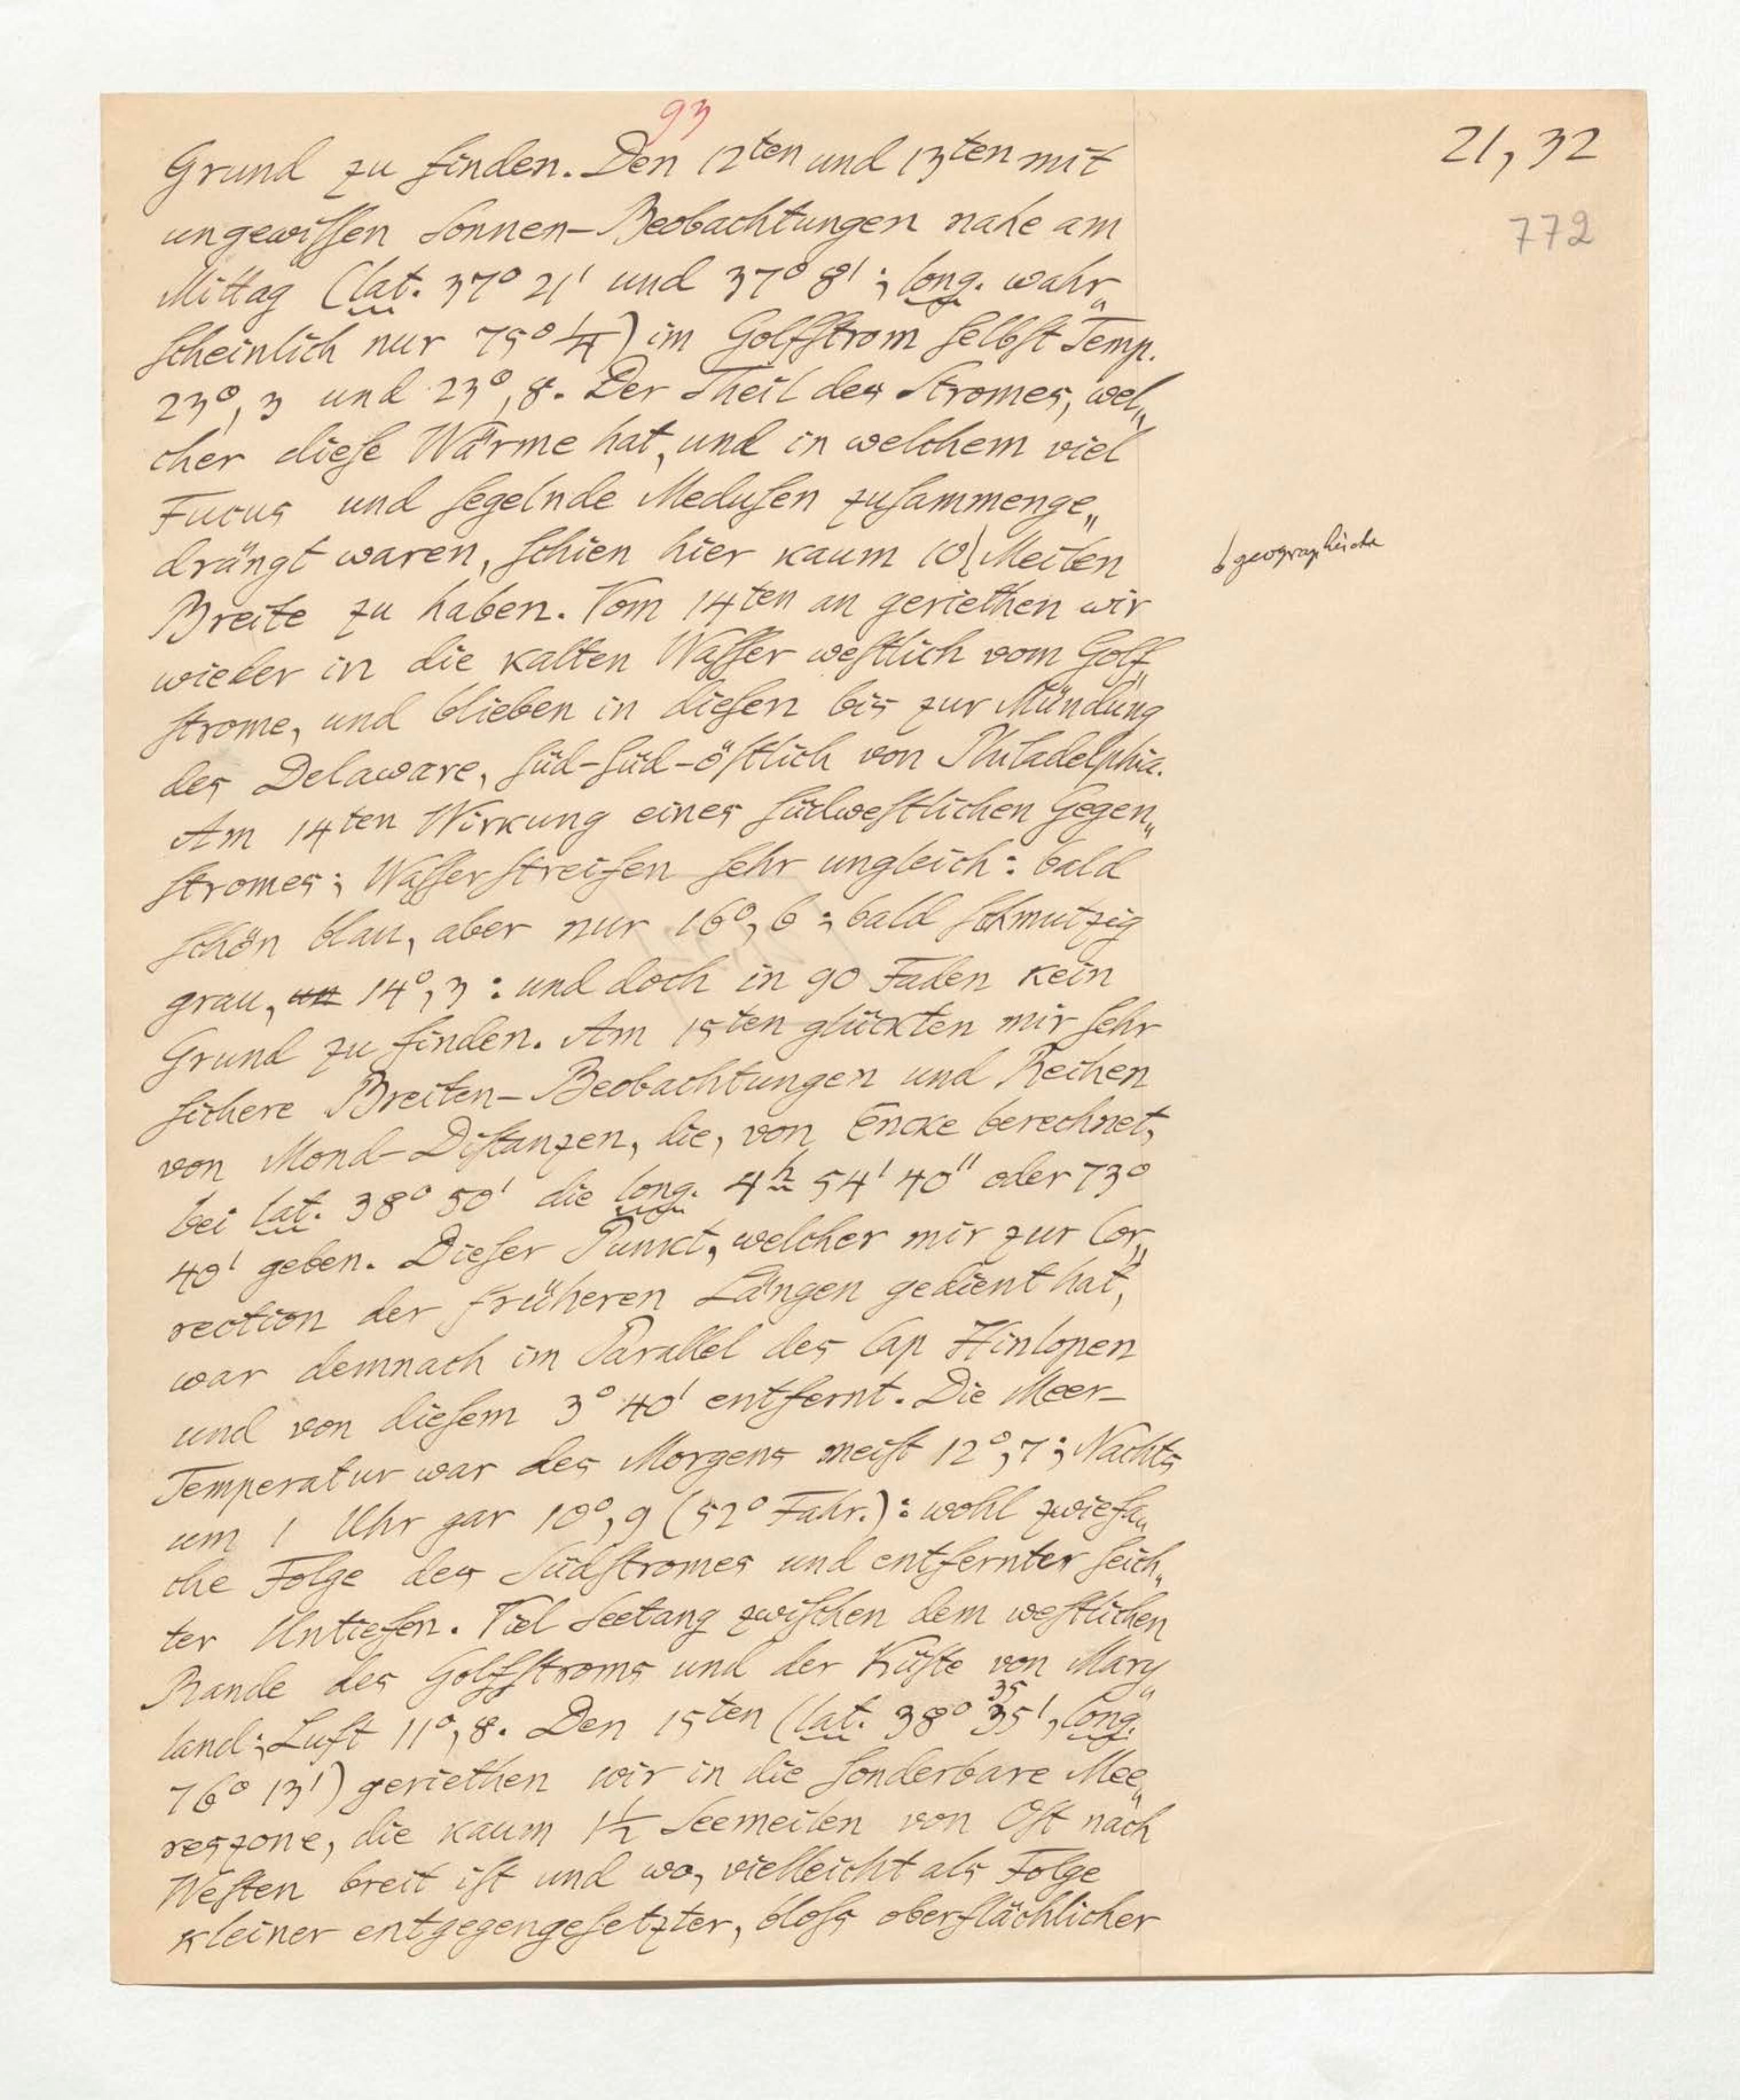 93
21, 32
772
Grund zu finden. Den 12ten und 13ten mit
ungewiſſen Sonnen-Beobachtungen nahe am
Mittag (lat. 37° 21' und 37° 8'; long. wahr„
ſcheinlich nur 75° ¼) im Golfſtrom ſelbſt Temp.
23°, 3 und 23°, 8. Der Theil des Stromes, wel„
cher dieſe Wärme hat, und in welchem viel
Fucus und ſegelnde Meduſen zuſammenge„
drängt waren, ſchien hier kaum 10 Meilen
geographiſche
Breite zu haben. Vom 14ten an geriethen wir
wieder in die kalten Waſſer weſtlich vom Golf„
ſtrome, und blieben in dieſen bis zur Mündung
des Delaware, ſüd-ſüd-öſtlich von Philadelphia.
Am 14ten Wirkung eines ſüdweſtlichen Gegen„
ſtromes; Waſſerſtreifen ſehr ungleich: bald
ſchön blau, aber nur 16°, 6; bald ſchmutzig
grau, un 14°, 3: und doch in 90 Faden kein
Grund zu finden. Am 15ten glückten mir ſehr
ſichere Breiten-Beobachtungen und Reihen
von Mond-Diſtanzen, die, von Encke berechnet,
bei lat. 38° 50' die long. 4h 54' 40'' oder 73°
40' geben. Dieſer Punkt, welcher mir zur Cor„
rection der früheren Längen gedient hat,
war demnach im Parallel des Cap Hinlopen
und von dieſem 3° 40' entfernt. Die Meer-
Temperatur war des Morgens meiſt 12°, 7; Nachts
um 1 Uhr gar 10°, 9 (52° Fahr.): wohl zwiefa„
che Folge des Südſtromes und entfernter ſeich„
ter Untiefen. Viel Seetang zwiſchen dem weſtlichen
Rande des Golfſtroms und der Küſte von Mary„
land; Luft 11°, 8. Den 15ten (lat. 38° 35', long.
35
76° 13') geriethen wir in die ſonderbare Mee„
reszone, die kaum 1½ Seemeilen von Oſt nach
Weſten breit iſt und wo, vielleicht als Folge
kleiner entgegengeſetzter, bloſs oberflächlicher